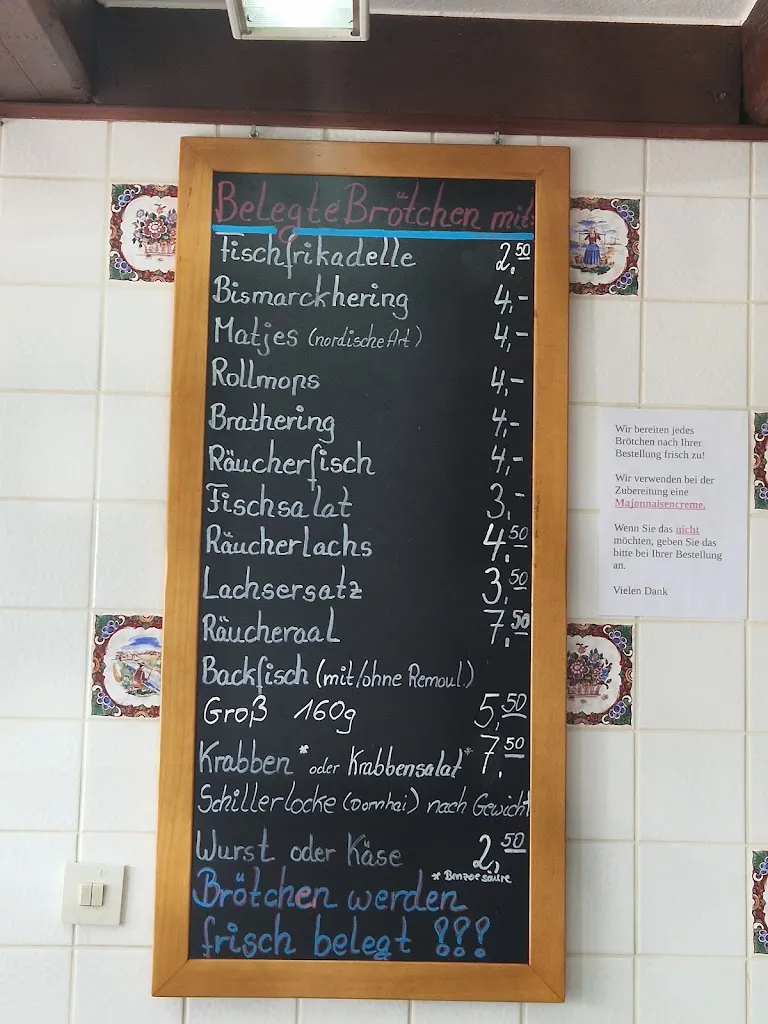 Belegte Brötchen mit:
Fischfrikadelle 2,50
Bismarckhering 4,-
Matjes (nordische Art) 4,-
Rollmops 4,-
Brathering 4,-
Räucherfisch 4,-
Fischsalat 3,-
Räucherlachs 4,50
Lachsersatz 3,50
Räucheraal 7,50
Backfisch (mit/ohne Remoul.)
Groß 160g 5,50
Krabben* oder Krabbensalat* 7,50
Schillerlocke (Dornhai) nach Gewicht
Wurst oder Käse 2,50
* Benzoesäure
Brötchen werden
frisch belegt !!!
Wir bereiten jedes
Brötchen nach Ihrer
Bestellung frisch zu!
Wir verwenden bei der
Zubereitung eine
Majonnaisencreme.
Wenn Sie das nicht
möchten, geben Sie das
bitte bei Ihrer Bestellung
an.
Vielen Dank